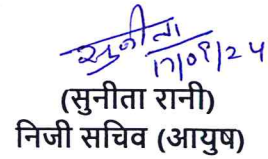 सुनीता
17/09/24
(सुनीता रानी)
निजी सचिव (आयुष)